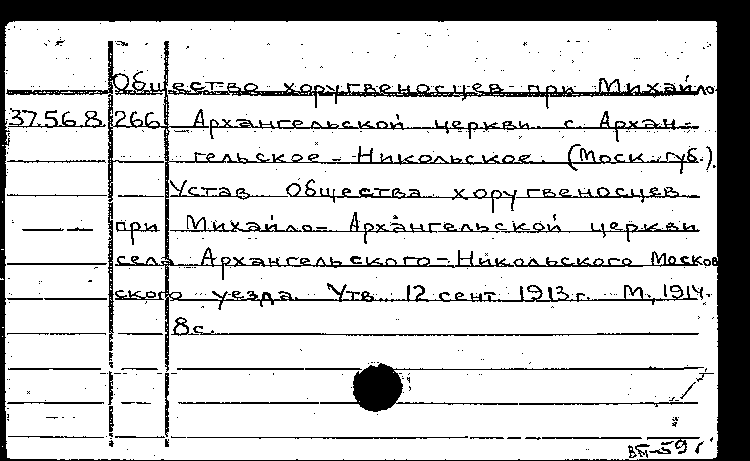 Общество хоругвеносцев при Михайло-
37.56.8 266 Архангельской церкви с. Архан-
гельское-Никольское. (Моск. губ.).
Устав Общества хоругвеносцев
при Михайло-Архангельской церкви
села Архангельского-Никольского Москов
ского уезда. Утв. 12 сент. 1913 г. М., 1914.
8 с.